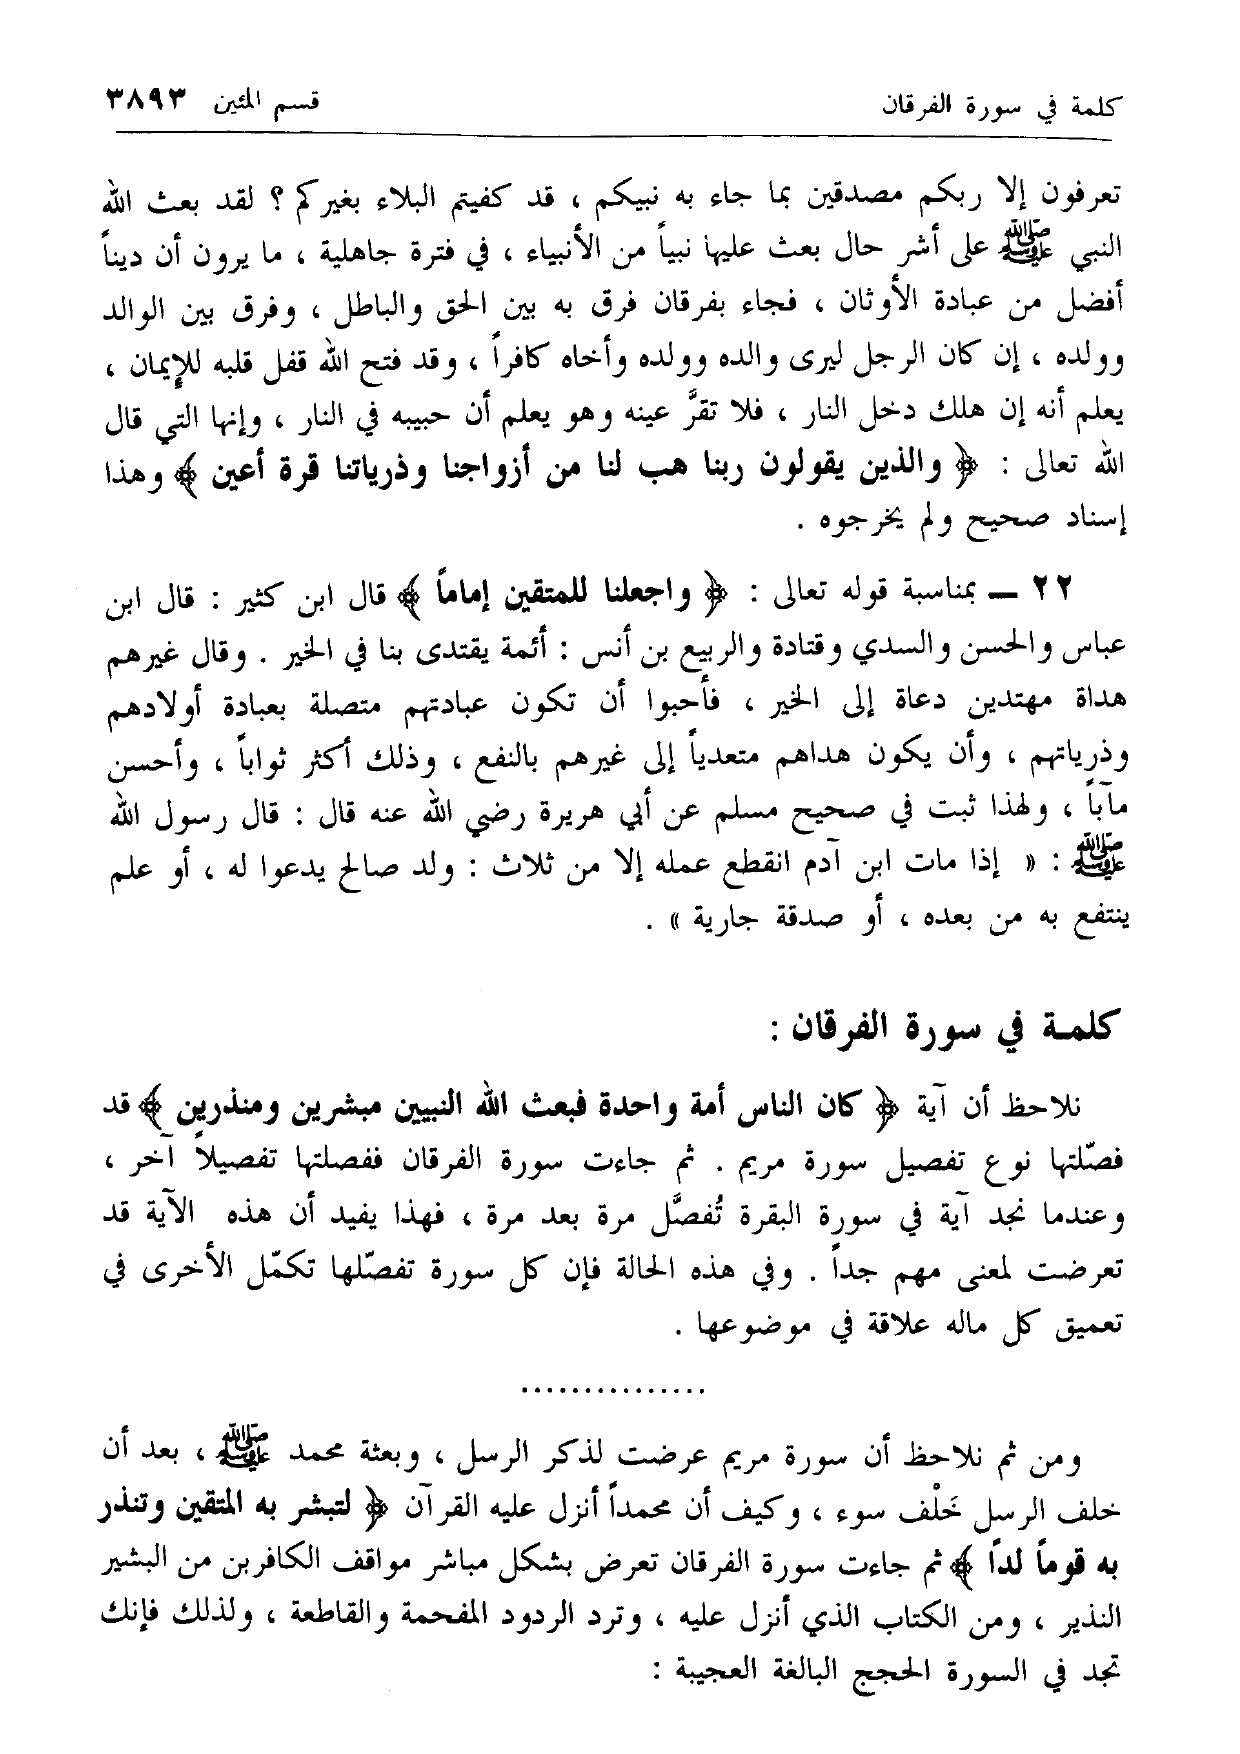 كلمة في سورة الفرقان
قسم المئين ٣٨٩٣
تعرفون إلا ربكم مصدقين بما جاء به نبيكم ، قد كفيتم البلاء بغيركم ؟ لقد بعث الله
النبي ﷺ على أشر حال بعث عليها نبياً من الأنبياء ، في فترة جاهلية ، ما يرون أن ديناً
أفضل من عبادة الأوثان ، فجاء بفرقان فرق به بين الحق والباطل ، وفرق بين الوالد
وولده ، إن كان الرجل ليرى والده وولده وأخاه كافراً ، وقد فتح الله قفل قلبه للإيمان ،
يعلم أنه إن هلك دخل النار ، فلا تقرَّ عينه وهو يعلم أن حبيبه في النار ، وإنها التي قال
الله تعالى : ﴿ والذين يقولون ربنا هب لنا من أزواجنا وذرياتنا قرة أعين ﴾ وهذا
إسناد صحيح ولم يخرجوه .
٢٢ ــ بمناسبة قوله تعالى : ﴿ واجعلنا للمتقين إماماً ﴾ قال ابن كثير : قال ابن
عباس والحسن والسدي وقتادة والربيع بن أنس : أئمة يقتدى بنا في الخير . وقال غيرهم
هداة مهتدين دعاة إلى الخير ، فأحبوا أن تكون عبادتهم متصلة بعبادة أولادهم
وذرياتهم ، وأن يكون هداهم متعدياً إلى غيرهم بالنفع ، وذلك أكثر ثواباً ، وأحسن
مآباً ، ولهذا ثبت في صحيح مسلم عن أبي هريرة رضي الله عنه قال : قال رسول الله
ﷺ : « إذا مات ابن آدم انقطع عمله إلا من ثلاث : ولد صالح يدعوا له ، أو علم
ينتفع به من بعده ، أو صدقة جارية » .
كلمـة في سورة الفرقان :
نلاحظ أن آية ﴿ كان الناس أمة واحدة فبعث الله النبيين مبشرين ومنذرين ﴾ قد
فصّلتها نوع تفصيل سورة مريم . ثم جاءت سورة الفرقان ففصلتها تفصيلاً آخر ،
وعندما نجد آية في سورة البقرة تُفصَّل مرة بعد مرة ، فهذا يفيد أن هذه الآية قد
تعرضت لمعنى مهم جداً . وفي هذه الحالة فإن كل سورة تفصّلها تكمّل الأخرى في
تعميق كل ماله علاقة في موضوعها .
...............
ومن ثم نلاحظ أن سورة مريم عرضت لذكر الرسل ، وبعثة محمد ﷺ ، بعد أن
خلف الرسل خَلْف سوء ، وكيف أن محمداً أنزل عليه القرآن ﴿ لتبشر به المتقين وتنذر
به قوماً لداً ﴾ ثم جاءت سورة الفرقان تعرض بشكل مباشر مواقف الكافرين من البشير
النذير ، ومن الكتاب الذي أنزل عليه ، وترد الردود المفحمة والقاطعة ، ولذلك فإنك
تجد في السورة الحجج البالغة العجيبة :